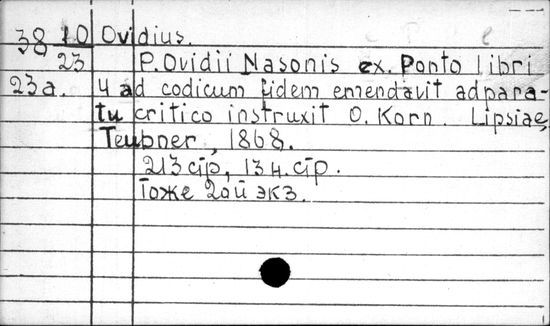 38 10 Ovidius.
23 P. Ovidii Nasonis ex. Ponto libri
23a. 4 ad codicum fidem emendavit adpara-
tu critico instruxit O. Korn. Lipsiae,
Teubner, 1868.
213 стр, 13 н. стр.
Тоже 2ой экз.